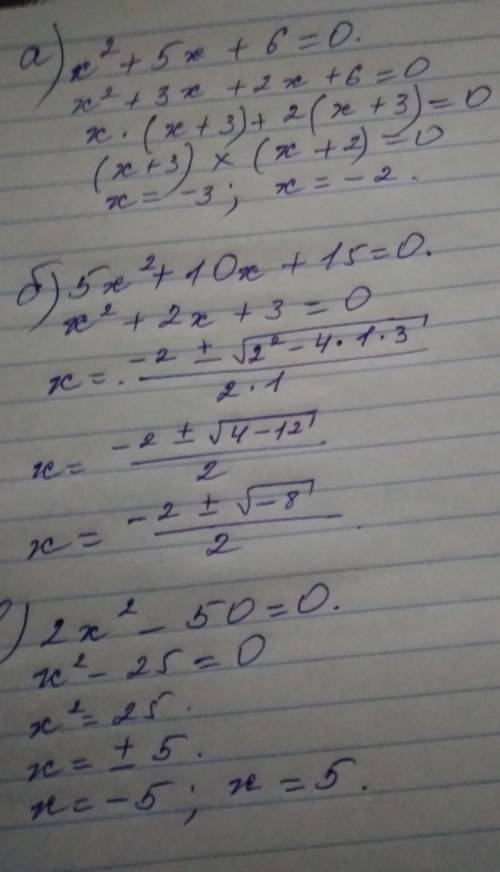 а) x² + 5x + 6 = 0.
x² + 3x + 2x + 6 = 0
x · (x + 3) + 2(x + 3) = 0
(x + 3) × (x + 2) = 0
x = -3; x = -2.
б) 5x² + 10x + 15 = 0.
x² + 2x + 3 = 0
x = (-2 ± √(2² - 4 · 1 · 3)) / (2 · 1)
x = (-2 ± √(4 - 12)) / 2
x = (-2 ± √(-8)) / 2.
) 2x² - 50 = 0.
x² - 25 = 0
x² = 25.
x = ± 5.
x = -5; x = 5.